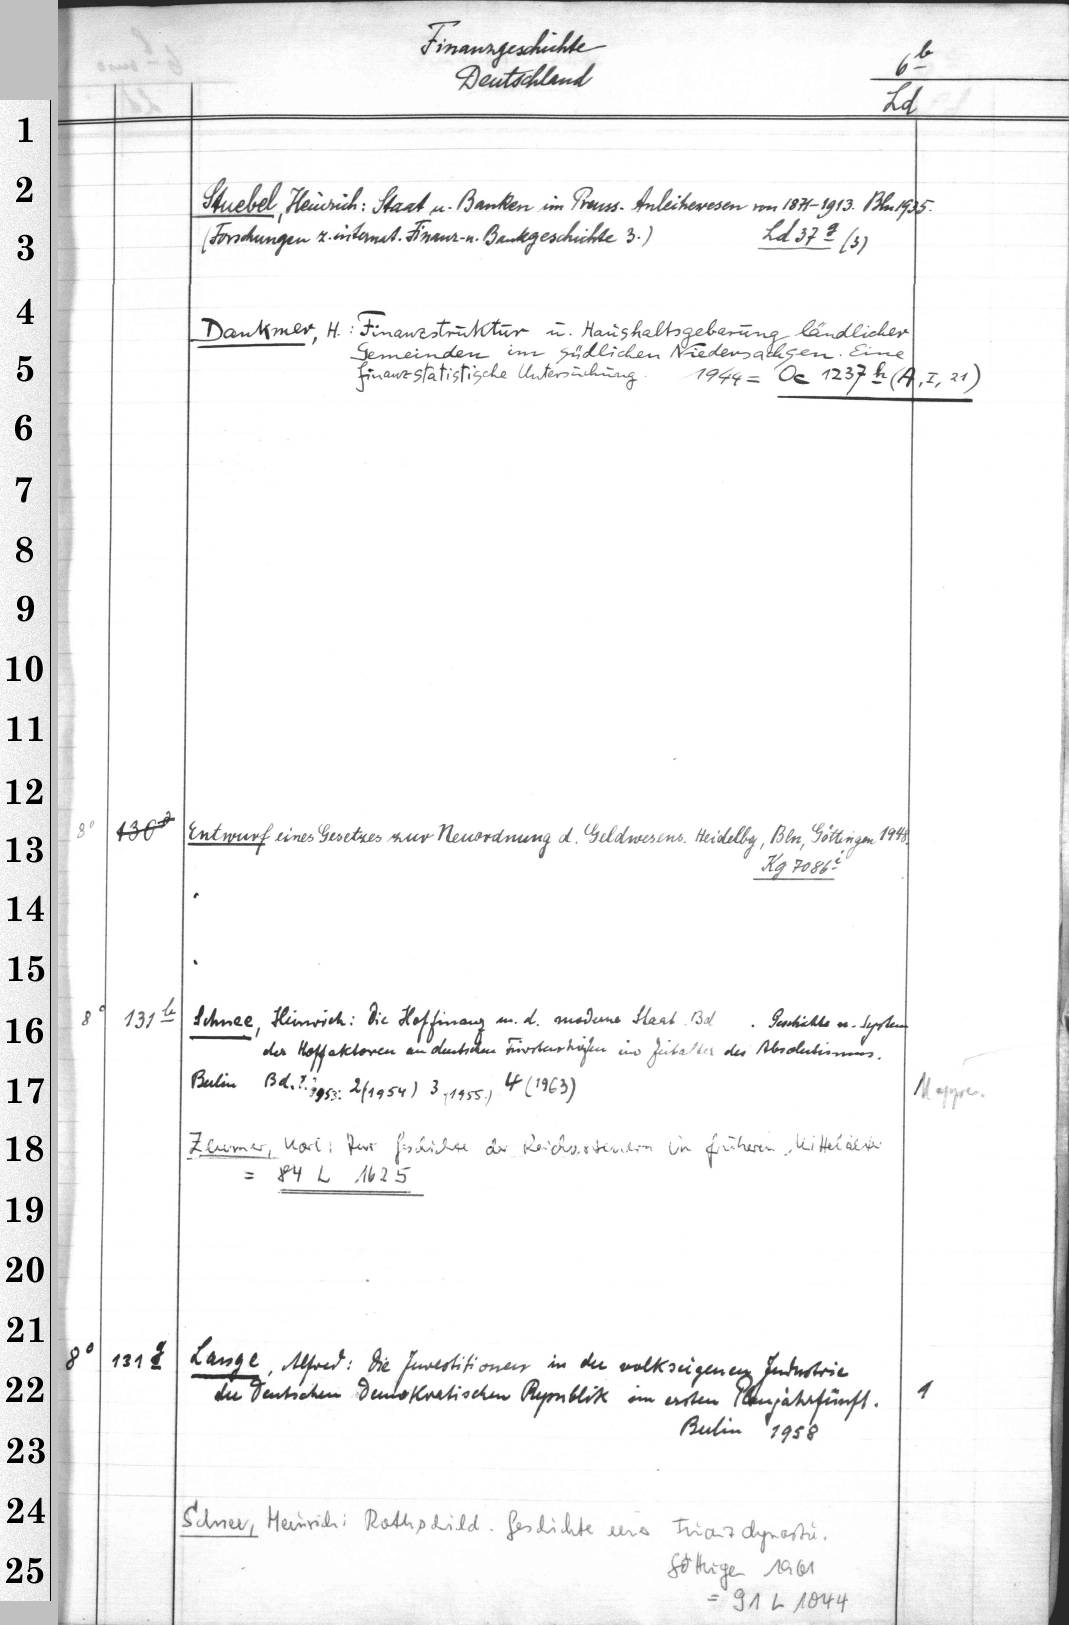 Finanzgeschichte
Deutschland
6 b
Ld
1
2
Stuebel, Heinrich: Staat u. Banken im Preuss. Anleihewesen von 1871-1913. Bln 1935.
3
(Forschungen z. internat. Finanz- u. Bankgeschichte 3.) Ld 37 g (3)
4
Dankmer, H.: Finanzstruktur u. Haushaltsgebarung ländlicher
Gemeinden im südlichen Niedersachsen. Eine
5
finanzstatistische Untersuchung. 1944 = Oc 1237 h (A, I, 21)
6
7
8
9
10
11
12
8° 130 Entwurf eines Gesetzes zur Neuordnung d. Geldwesens. Heidelbg, Bln, Göttingen 1948.
13
Kg 7086 i
14
15
8° 131 b Schnee, Heinrich: Die Hoffinanz u. d. moderne Staat. Bd . Geschichte u. System
16
der Hoffaktoren an deutschen Fürstenhöfen im Zeitalter des Absolutismus.
17
Berlin Bd. 1. 1953. 2 (1954) 3 (1955.) 4 (1963)
18
Karl: Zur Geschichte der im früheren Mittelalter
= 84 L 1625
19
20
21
8° 131 g Lange, Alfred: Die Investitionen in der volkseigenen Industrie
22
der Deutschen Demokratischen Republik im ersten Planjahrfünft. 1
23
Berlin 1958
24
Schnee, Heinrich: Rothschild. Geschichte einer Finanzdynastie.
25
Göttingen 1961
= 91 L 1044